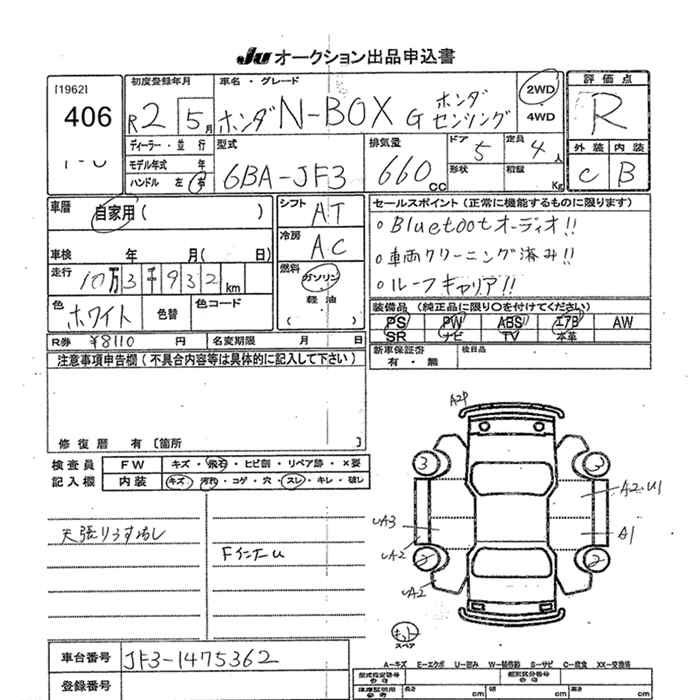 Ju オークション出品申込書
[1962]
406
初度登録年月
R2 5月
車名・グレード
ホンダ N-BOX G ホンダ センシング
2WD
4WD
評価点
R
外装 内装
C B
ディーラー・並行
モデル年式 年
ハンドル 左 右
型式
6BA-JF3
排気量
660cc
ドア 5
形状
定員 4人
積載 Kg
車暦
自家用( )
車検 年 月( 日)
走行 10万3千932km
色 ホワイト
色替
色コード
シフト AT
冷房 AC
燃料 ガソリン・軽油
( )
セールスポイント(正常に機能するものに限ります)
○Bluetootオーディオ!!
○車両クリーニング済み!!
○ルーフキャリア!!
装備品(純正品に限り○を付けてください)
PS PW ABS エアB AW
SR ナビ TV 本革
新車保証書
有・無
後日品
R券 ¥8110円
名変期限 月 日
注意事項申告欄(不具合内容等は具体的に記入して下さい)
修復歴 有[箇所 ]
検査員記入欄
FW キズ・飛石・ヒビ割・リペア跡・×要
内装 キズ・汚れ・コゲ・穴・スレ・キレ・破レ
天張りうすよごし
FインナーU
A2P
3 3
A2.U1
UA3
A1
UA2
2 2
UA2
キット
スペア
A-キズ E-エクボ U-凹み W-補修跡 S-サビ C-腐食 XX-交換済
車台番号 JF3-1475362
登録番号
型式指定番号
類別区分番号
長 cm 幅 cm 高 cm